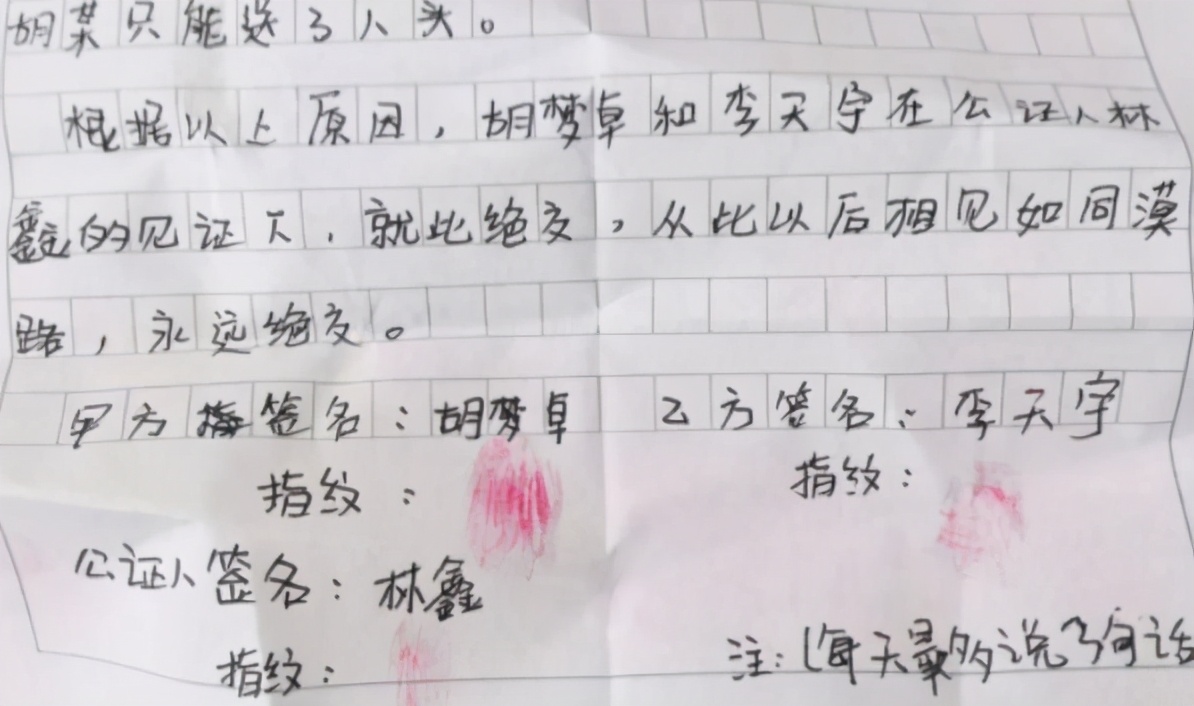 胡某只能送了人头。
根据以上原因，胡梦卓和李天宇在公证人林
鑫的见证下，就此绝交，从此以后相见如同漠
路，永远绝交。
甲方签名：胡梦卓 乙方签名：李天宇
指纹： 指纹：
公证人签名：林鑫
指纹： 注：(每天最多说3句话